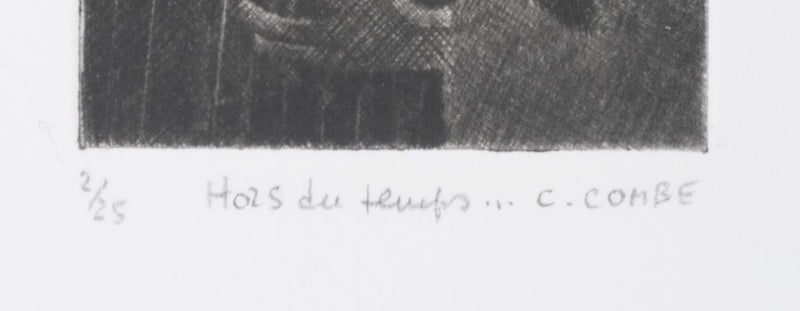 2/25 Hors du temps... C. COMBE